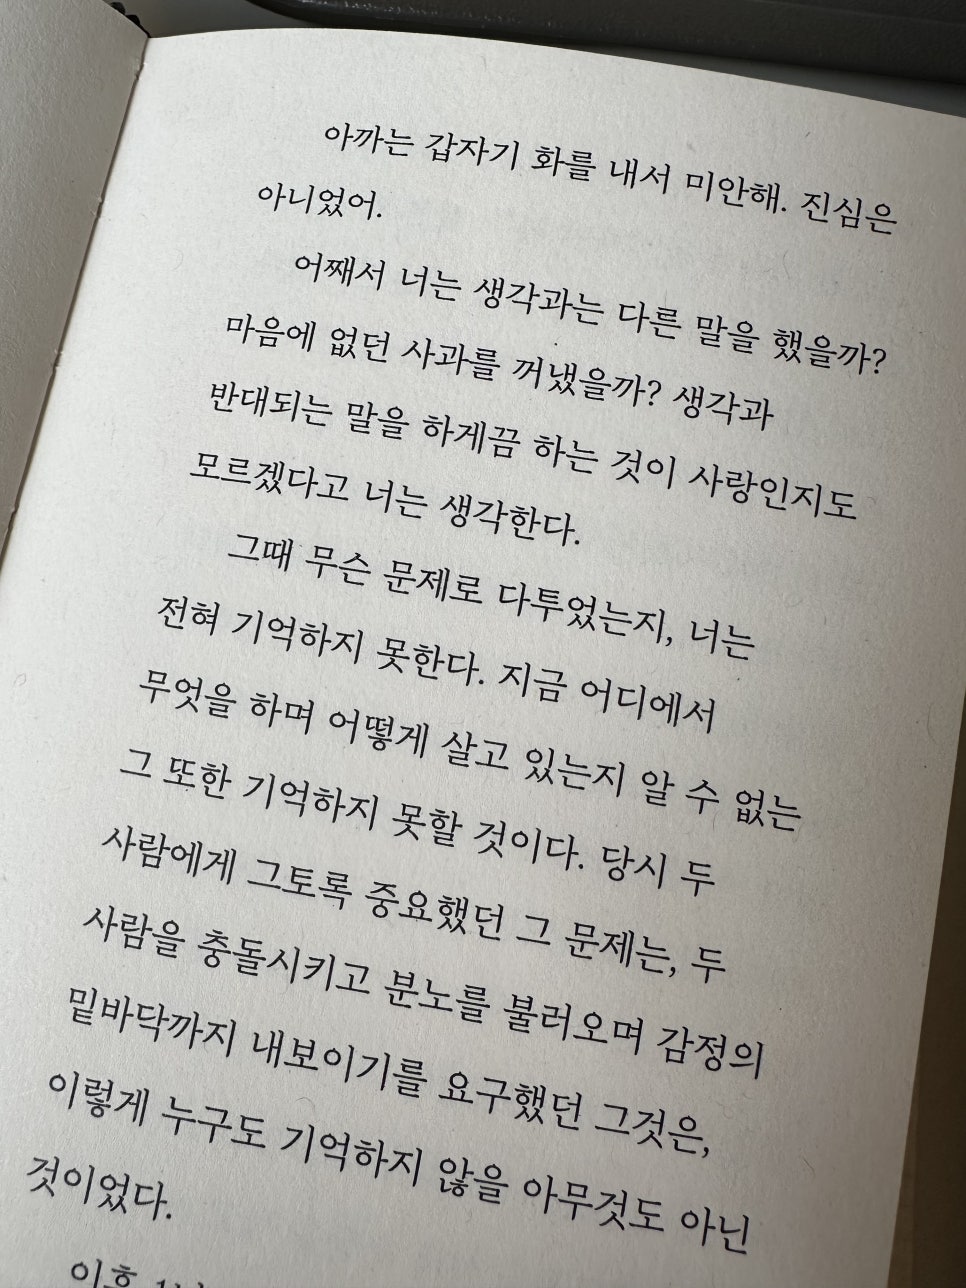 아까는 갑자기 화를 내서 미안해. 진심은
아니었어.
어째서 너는 생각과는 다른 말을 했을까?
마음에 없던 사과를 꺼냈을까? 생각과
반대되는 말을 하게끔 하는 것이 사랑인지도
모르겠다고 너는 생각한다.
그때 무슨 문제로 다투었는지, 너는
전혀 기억하지 못한다. 지금 어디에서
무엇을 하며 어떻게 살고 있는지 알 수 없는
그 또한 기억하지 못할 것이다. 당시 두
사람에게 그토록 중요했던 그 문제는, 두
사람을 충돌시키고 분노를 불러오며 감정의
밑바닥까지 내보이기를 요구했던 그것은,
이렇게 누구도 기억하지 않을 아무것도 아닌
것이었다.
이후